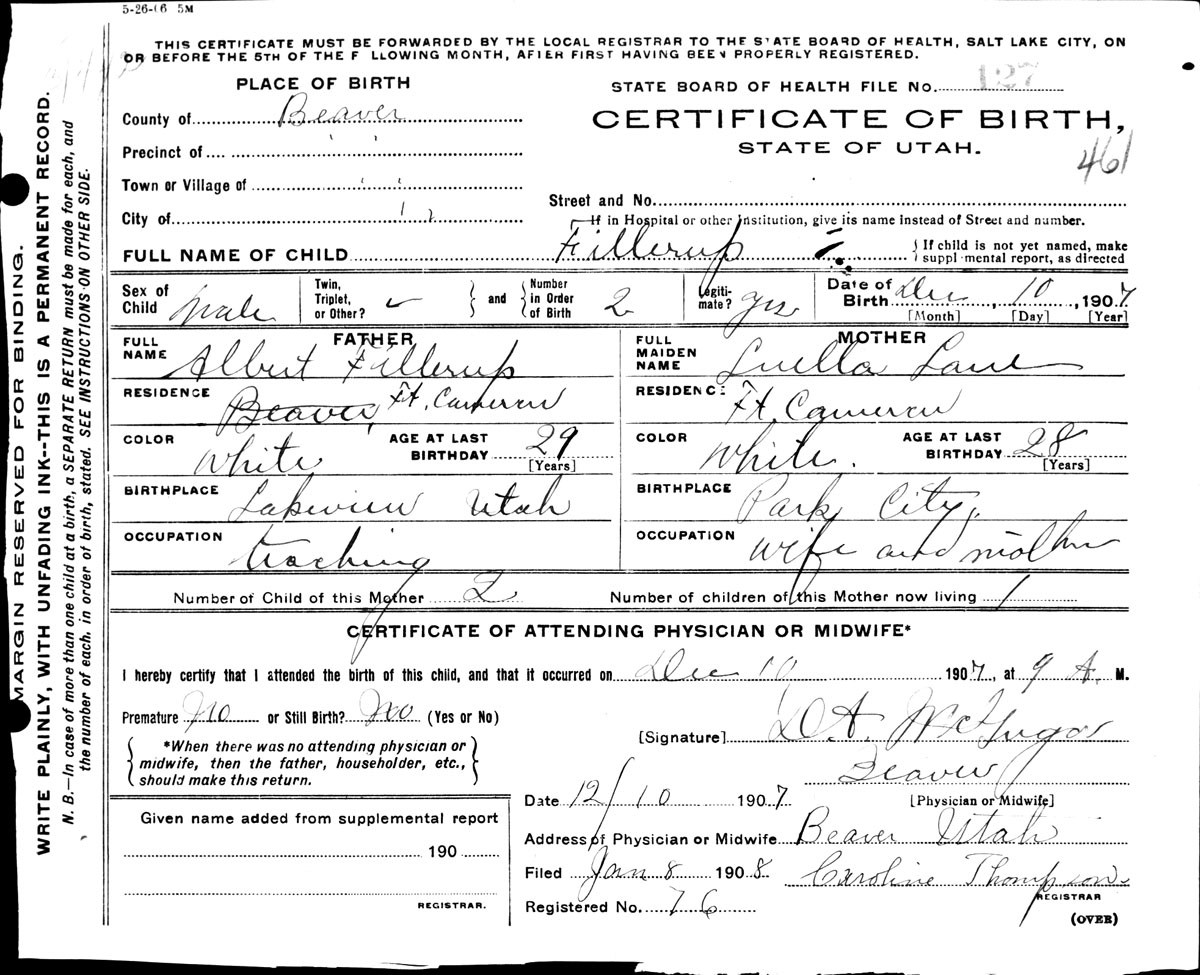 5-26-06 5M
THIS CERTIFICATE MUST BE FORWARDED BY THE LOCAL REGISTRAR TO THE STATE BOARD OF HEALTH, SALT LAKE CITY, ON
OR BEFORE THE 5TH OF THE F LLOWING MONTH, AFTER FIRST HAVING BEEN PROPERLY REGISTERED.
MARGIN RESERVED FOR BINDING.
WRITE PLAINLY, WITH UNFADING INK--THIS IS A PERMANENT RECORD.
N. B.—In case of more than one child at a birth, a SEPARATE RETURN must be made for each, and
the number of each, in order of birth, stated. SEE INSTRUCTIONS ON OTHER SIDE.
PLACE OF BIRTH
County of Beaver
Precinct of " "
Town or Village of " "
City of " "
STATE BOARD OF HEALTH FILE No. 127
CERTIFICATE OF BIRTH,
STATE OF UTAH.
461
Street and No.
If in Hospital or other Institution, give its name instead of Street and number.
FULL NAME OF CHILD Fillerup
If child is not yet named, make
suppl mental report, as directed
Sex of Child Male Twin, Triplet, or Other? and Number in Order of Birth 2 Legiti-mate? yes Date of Birth Dec 10, 1907
[Month] [Day] [Year]
FATHER
FULL NAME Albert Fillerup
RESIDENCE Beaver, Ft. Cameron
COLOR White AGE AT LAST BIRTHDAY 29
[Years]
BIRTHPLACE Lakeview Utah
OCCUPATION teaching
MOTHER
FULL MAIDEN NAME Luella Lane
RESIDENCE Ft. Cameron
COLOR White. AGE AT LAST BIRTHDAY 28
[Years]
BIRTHPLACE Park City,
OCCUPATION wife and mother
Number of Child of this Mother 2 Number of children of this Mother now living 1
CERTIFICATE OF ATTENDING PHYSICIAN OR MIDWIFE*
I hereby certify that I attended the birth of this child, and that it occurred on Dec 10 1907, at 9 A. M.
Premature No or Still Birth? No (Yes or No)
*When there was no attending physician or
midwife, then the father, householder, etc.,
should make this return.
[Signature] D.A.
Beaver
[Physician or Midwife]
Date 12/10 1907
Address of Physician or Midwife Beaver Utah
Filed Jan 8 1908 Caroline Thompson
REGISTRAR
Registered No. 76
(OVER)
Given name added from supplemental report
190
REGISTRAR.